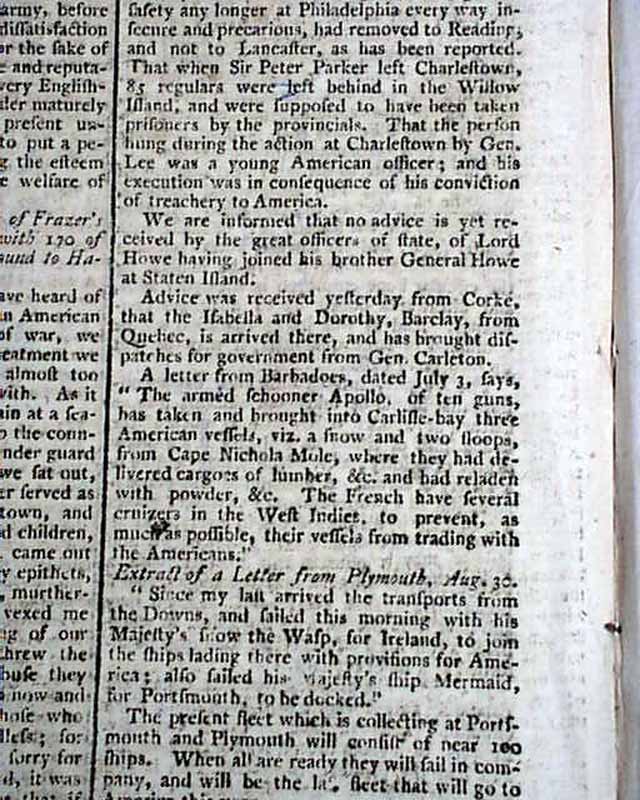 army, before
dissatisfaction
or the sake of
e and reputa-
very English-
der maturely
present un-
to put a pe-
g the esteem
e welfare of
of Frazer's
with 170 of
ound to Ha-
ave heard of
n American
of war, we
eatment we
almost too
with. As it
ain at a sea-
o the coun-
nder guard
we sat out,
er served as
town, and
d children,
came out
y epithets,
murther-
vexed me
ng of our
threw the
buse they
now and
hose who
less; for
sorry for
d, it was
that if
ſafety any longer at Philadelphia every way in-
ſecure and precarious, had removed to Reading;
and not to Lancaſter, as has been reported.
That when Sir Peter Parker left Charleſtown,
85 regulars were left behind in the Willow
Iſland, and were ſuppoſed to have been taken
priſoners by the provincials. That the perſon
hung during the action at Charleſtown by Gen.
Lee was a young American officer; and his
execution was in conſequence of his conviction
of treachery to America.
We are informed that no advice is yet re-
ceived by the great officers of ſtate, of Lord
Howe having joined his brother General Howe
at Staten Iſland.
Advice was received yeſterday from Corke,
that the Iſabella and Dorothy, Barclay, from
Quebec, is arrived there, and has brought diſ-
patches for government from Gen. Carleton.
A letter from Barbadoes, dated July 3, ſays,
" The armed ſchooner Apollo, of ten guns,
has taken and brought into Carliſle-bay three
American veſſels, viz. a ſnow and two ſloops,
from Cape Nichola Mole, where they had de-
livered cargoes of lumber, &c. and had reladen
with powder, &c. The French have ſeveral
cruizers in the Weſt Indies, to prevent, as
much as poſſible, their veſſels from trading with
the Americans."
Extract of a Letter from Plymouth, Aug. 30.
" Since my laſt arrived the tranſports from
the Downs, and ſailed this morning with his
Majeſty's ſnow the Waſp, for Ireland, to join
the ſhips lading there with proviſions for Ame-
rica; alſo ſailed his Majeſty's ſhip Mermaid,
for Portſmouth, to be docked."
The preſent fleet which is collecting at Portſ-
mouth and Plymouth will conſiſt of near 100
ſhips. When all are ready they will ſail in com-
pany, and will be the laſt fleet that will go to
America this